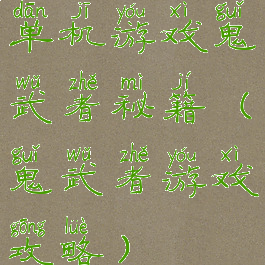 dān jī yóu xì guǐ
单机游戏鬼
wǔ zhě mì jí
武者秘籍(
guǐ wǔ zhě yóu xì
鬼武者游戏
gōng lüè
攻略)